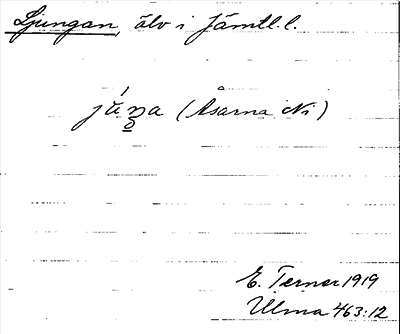 Ljungan, älv i Jämtl. l.
(Åsarna sn)
E. Ternor 1919
Ulma 463:12